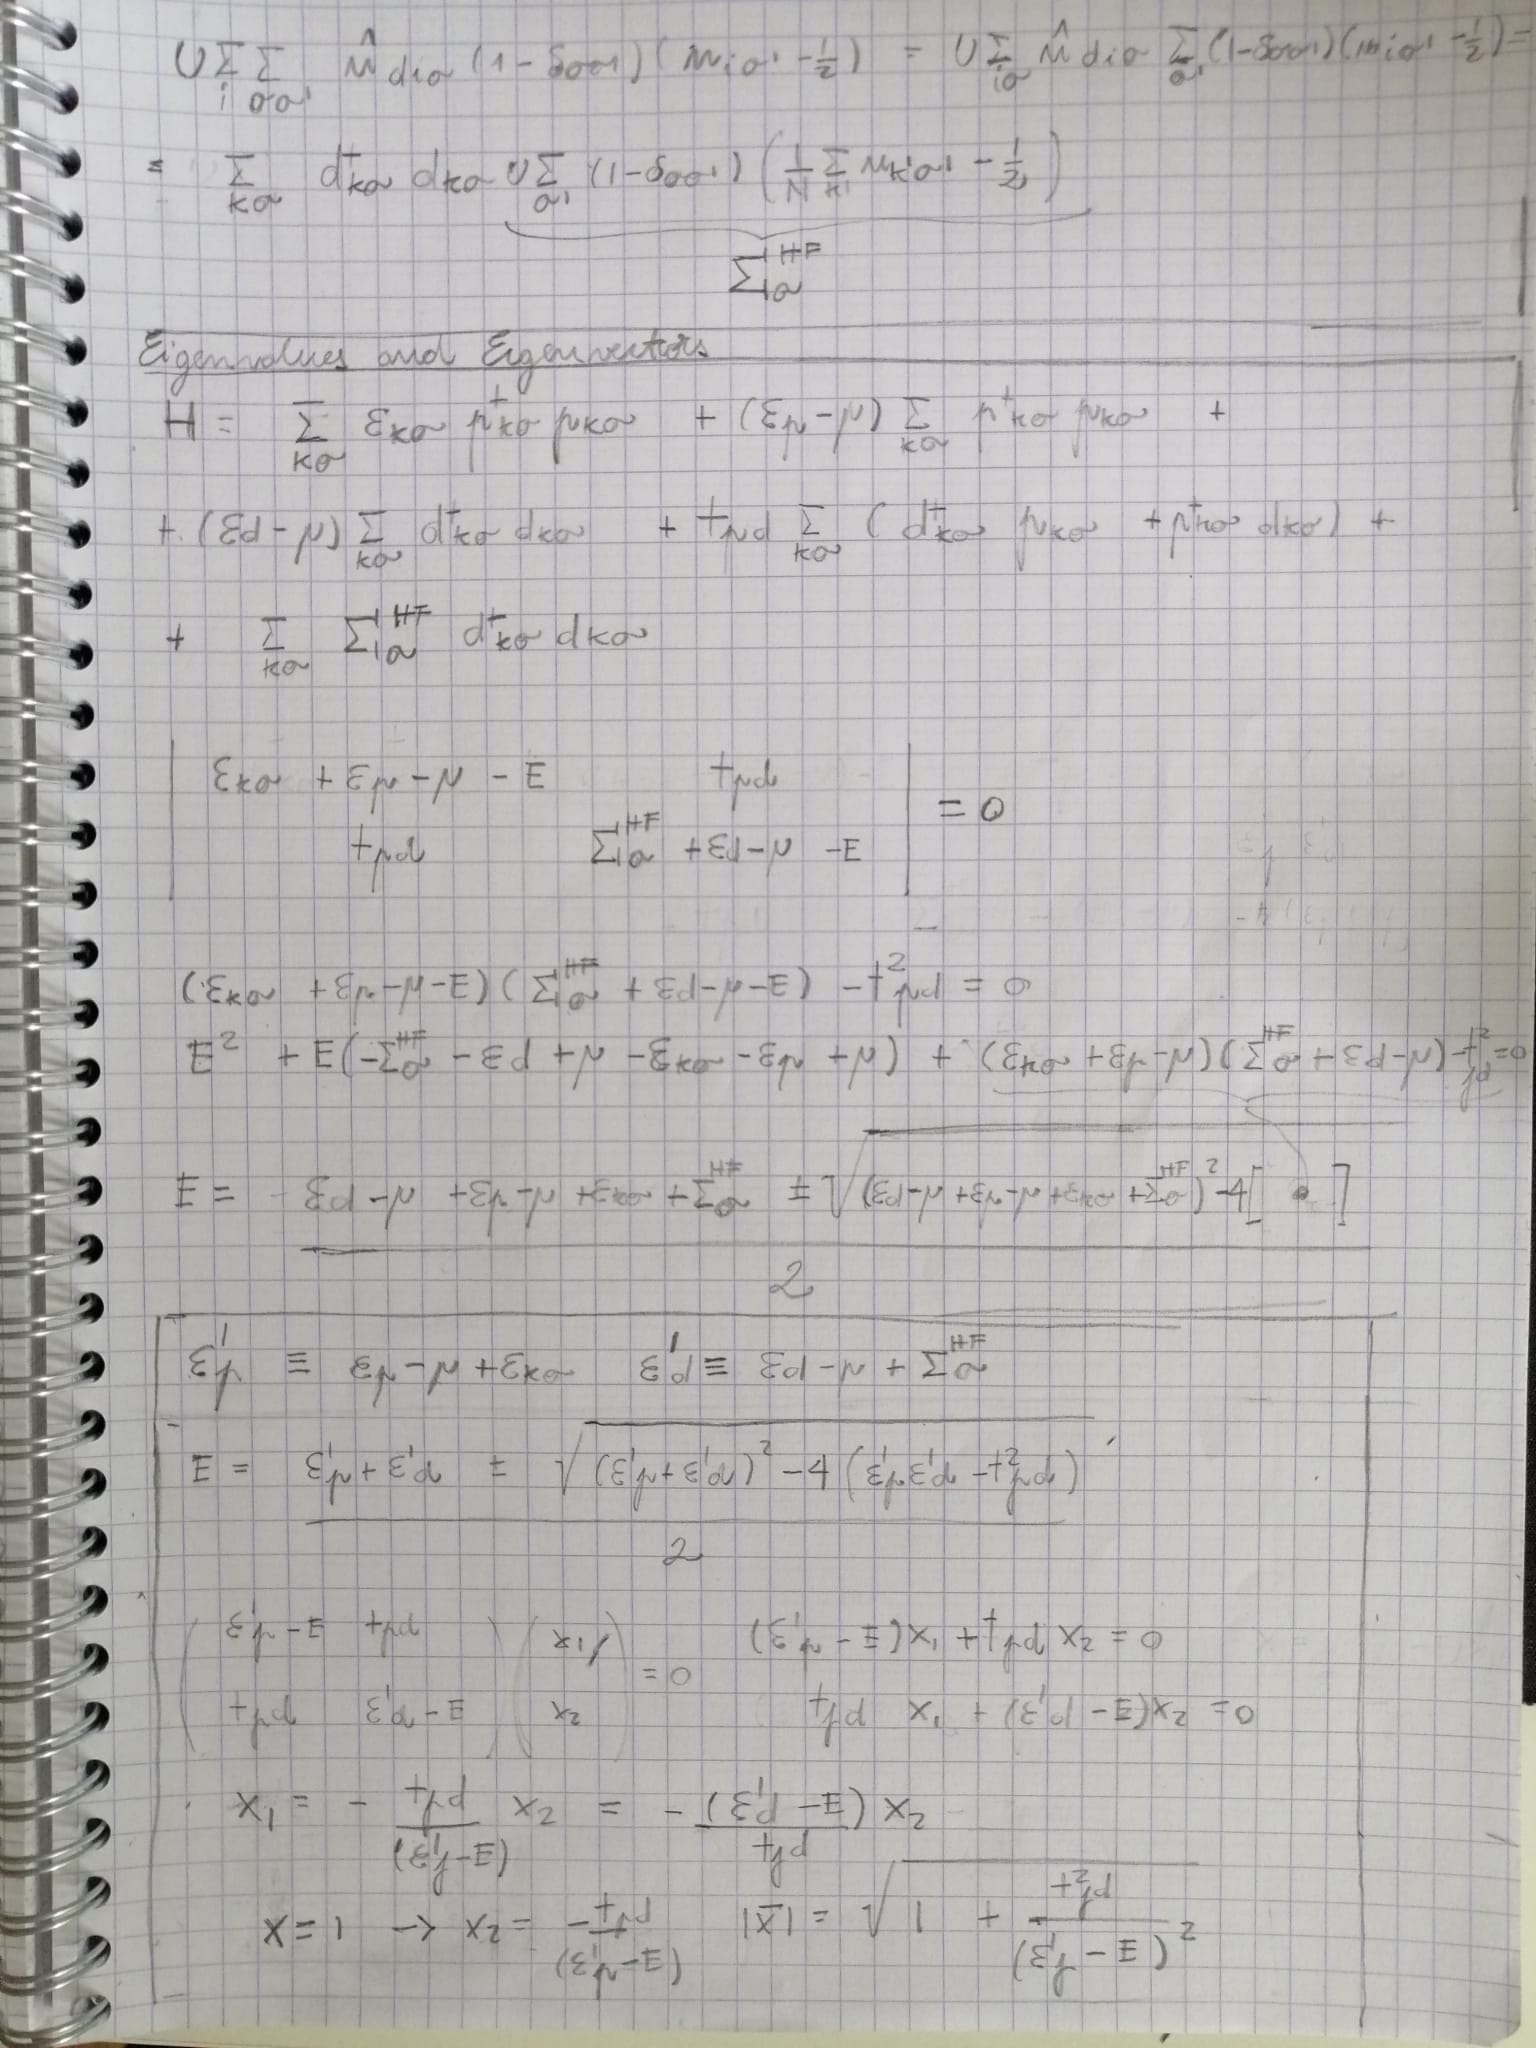 U Σ_i Σ_σσ' n̂_diσ (1-δ_σσ') (n_iσ' - 1/2) = U Σ_iσ n̂_diσ Σ_σ' (1-δ_σσ') (n_iσ' - 1/2) =
= Σ_kσ d⁺_kσ d_kσ U Σ_σ' (1-δ_σσ') (1/N Σ_k' n_k'σ' - 1/2)
Σ_σ^HF
Eigenvalues and Eigenvectors
H = Σ_kσ ε_kσ p⁺_kσ p_kσ + (ε_p-μ) Σ_kσ p⁺_kσ p_kσ +
+ (ε_d-μ) Σ_kσ d⁺_kσ d_kσ + t_pd Σ_kσ (d⁺_kσ p_kσ + p⁺_kσ d_kσ) +
+ Σ_kσ Σ_σ^HF d⁺_kσ d_kσ
| ε_kσ + ε_p - μ - E t_pd |
| t_pd Σ_σ^HF + ε_d - μ - E | = 0
(ε_kσ + ε_p - μ - E) (Σ_σ^HF + ε_d - μ - E) - t²_pd = 0
E² + E(-Σ_σ^HF - ε_d + μ - ε_kσ - ε_p + μ) + (ε_kσ + ε_p - μ)(Σ_σ^HF + ε_d - μ) - t²_pd = 0
E = ε_d - μ + ε_p - μ + ε_kσ + Σ_σ^HF ± √(ε_d - μ + ε_p - μ + ε_kσ + Σ_σ^HF)² - 4[ • ]
2
ε'_p ≡ ε_p - μ + ε_kσ ε'_d ≡ ε_d - μ + Σ_σ^HF
E = ε'_p + ε'_d ± √(ε'_p + ε'_d)² - 4(ε'_p ε'_d - t²_pd)
2
( ε'_p - E t_pd ) ( x_1 ) = 0 (ε'_p - E) x_1 + t_pd x_2 = 0
( t_pd ε'_d - E ) ( x_2 ) t_pd x_1 + (ε'_d - E) x_2 = 0
x_1 = - t_pd/(ε'_p - E) x_2 = - (ε'_d - E)/t_pd x_2
x = 1 → x_2 = - t_pd/(ε'_p - E) |x̄| = √1 + t²_pd/(ε'_p - E)²